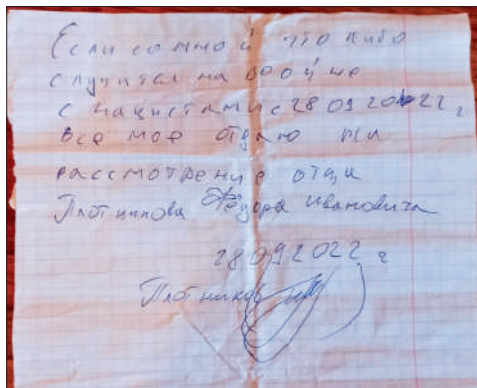 Если со мной что либо
случится на войне
с нацистами с 28 09 2022 г
все мое отдаю на
рассмотрение отца
Плотникова Фёдора Ивановича
28 09 2022 г
Плотников